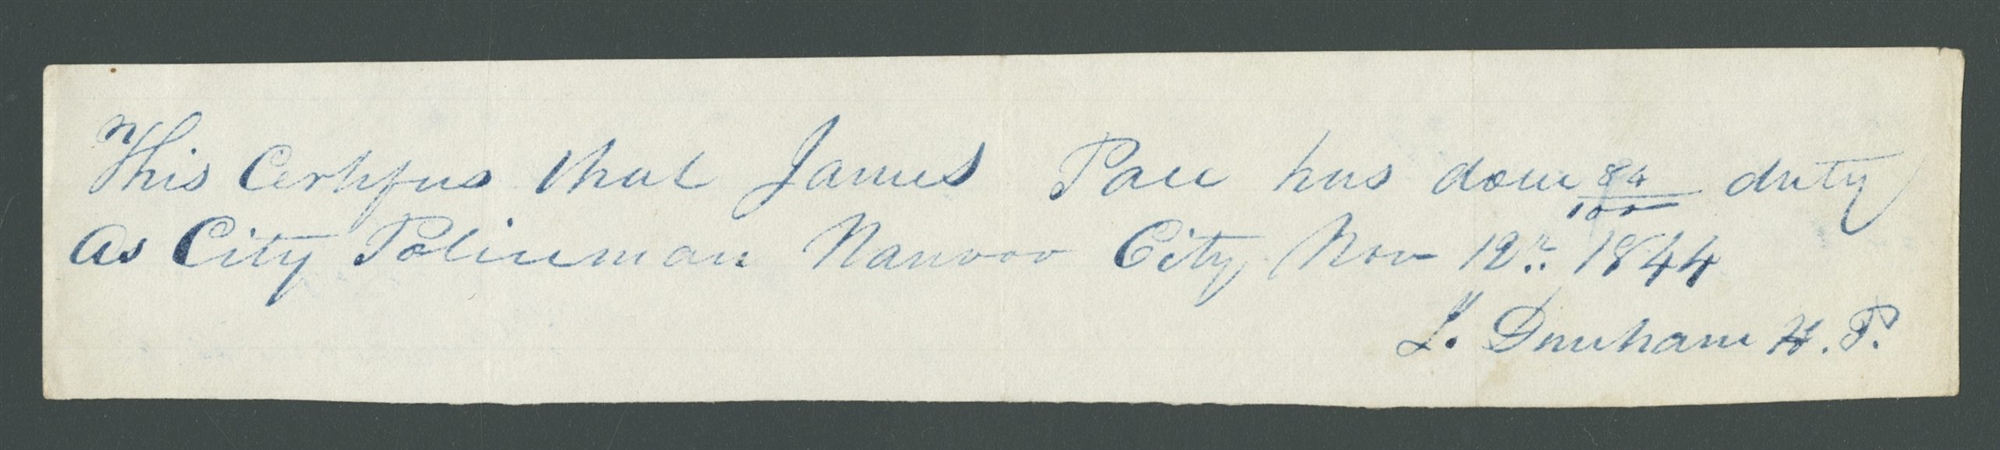 This Certifies that James Pace has done 84/100 duty
as City Policeman Nauvoo City Nov 12th 1844
J. Dunham H. P.